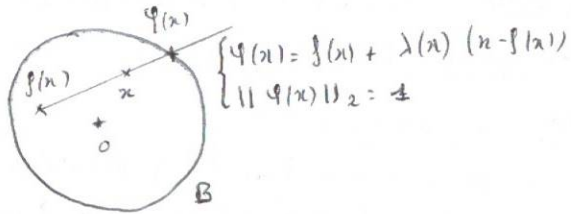 φ(x)
f(x)
x
O
B
φ(x) = f(x) + λ(x) (x - f(x))
|| φ(x) ||₂ = 1